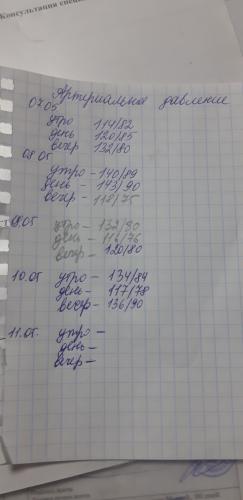 Консультация специ
Артериальное давление
07.05
утро 114/82
день 120/85
вечер 132/80
08.05
утро - 140/89
день - 143/90
вечер - 118/75
09.05 утро - 132/90
день - 116/76
вечер - 120/80
10.05 утро - 134/84
день - 117/78
вечер - 136/90
11.05. утро -
день -
вечер -